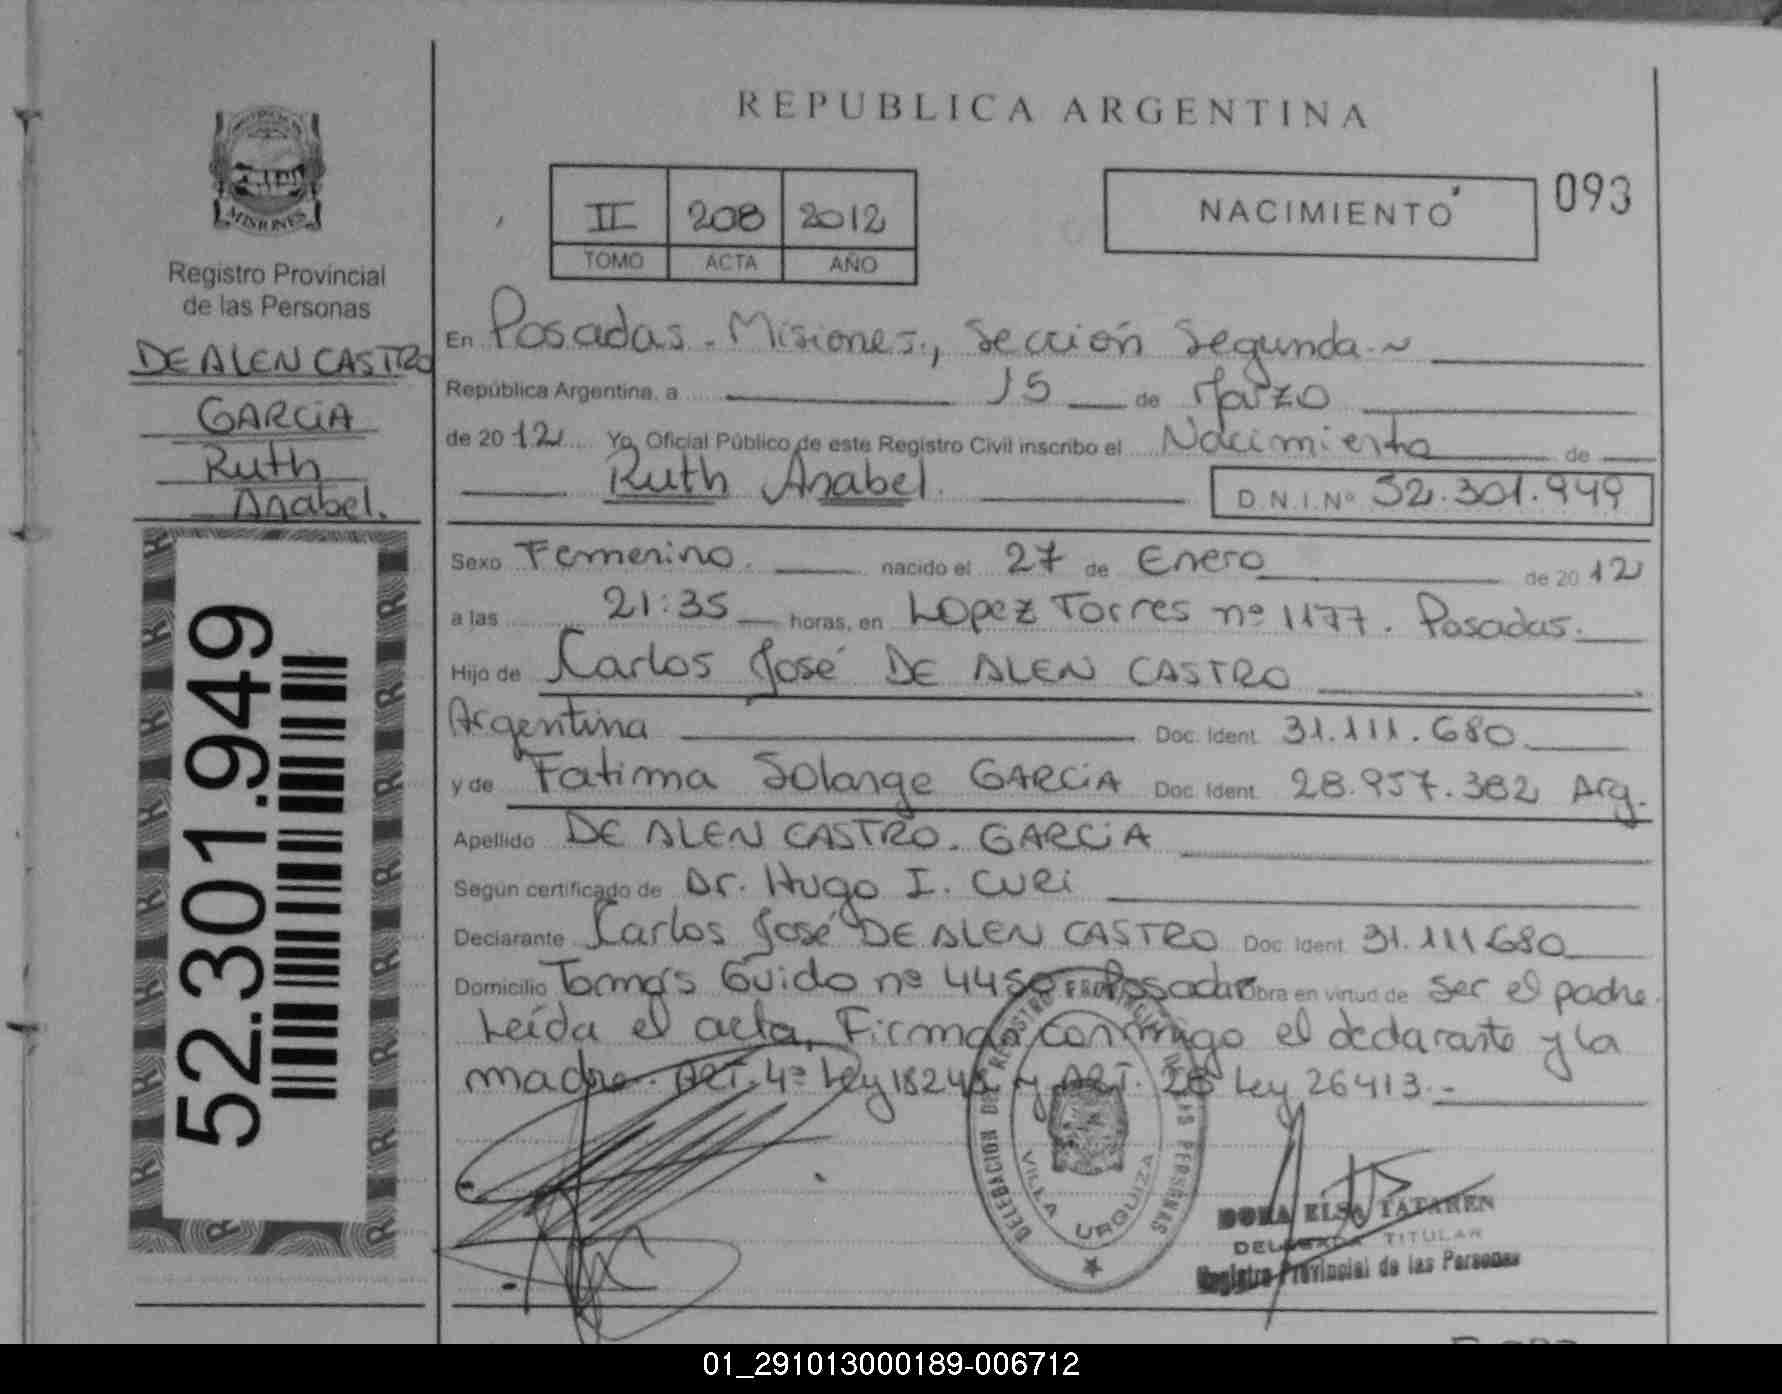 REPUBLICA ARGENTINA
MISIONES
Registro Provincial
de las Personas
DE ALEN CASTRO
GARCiA
Ruth
Anabel.
52.301.949
II 208 2012
TOMO ACTA AÑO
NACIMIENTO
093
En Posadas. Misiones., Sección Segunda.~
República Argentina, a 15 de Marzo
de 2012 Yo, Oficial Público de este Registro Civil inscribo el Nacimiento de
Ruth Anabel.
D.N.I.Nº 52.301.949
Sexo Femenino. nacido el 27 de Enero de 2012
a las 21:35 horas, en Lopez Torres nº 1177. Posadas.
Hijo de Carlos José DE ALEN CASTRO
Argentina Doc. Ident. 31.111.680
y de Fatima Solange GARCiA Doc. Ident. 28.957.382 Arg.
Apellido DE ALEN CASTRO. GARCiA
Según certificado de Dr. Hugo I. CURi
Declarante Carlos José DE ALEN CASTRO Doc. Ident. 31.111.680
Domicilio Tomás Guido nº 4450 Posadas Obra en virtud de ser el padre.
Leída el acta, Firman conmigo el declarante y la
madre. ART. 4º Ley 18248 y ART. 28 Ley 26413.-
DELEGACION DEL REGISTRO PROVINCIAL DE LAS PERSONAS
VILLA URQUIZA
DORA ELSA TATAREN
DELEGADA TITULAR
Registro Provincial de las Personas
01_291013000189-006712